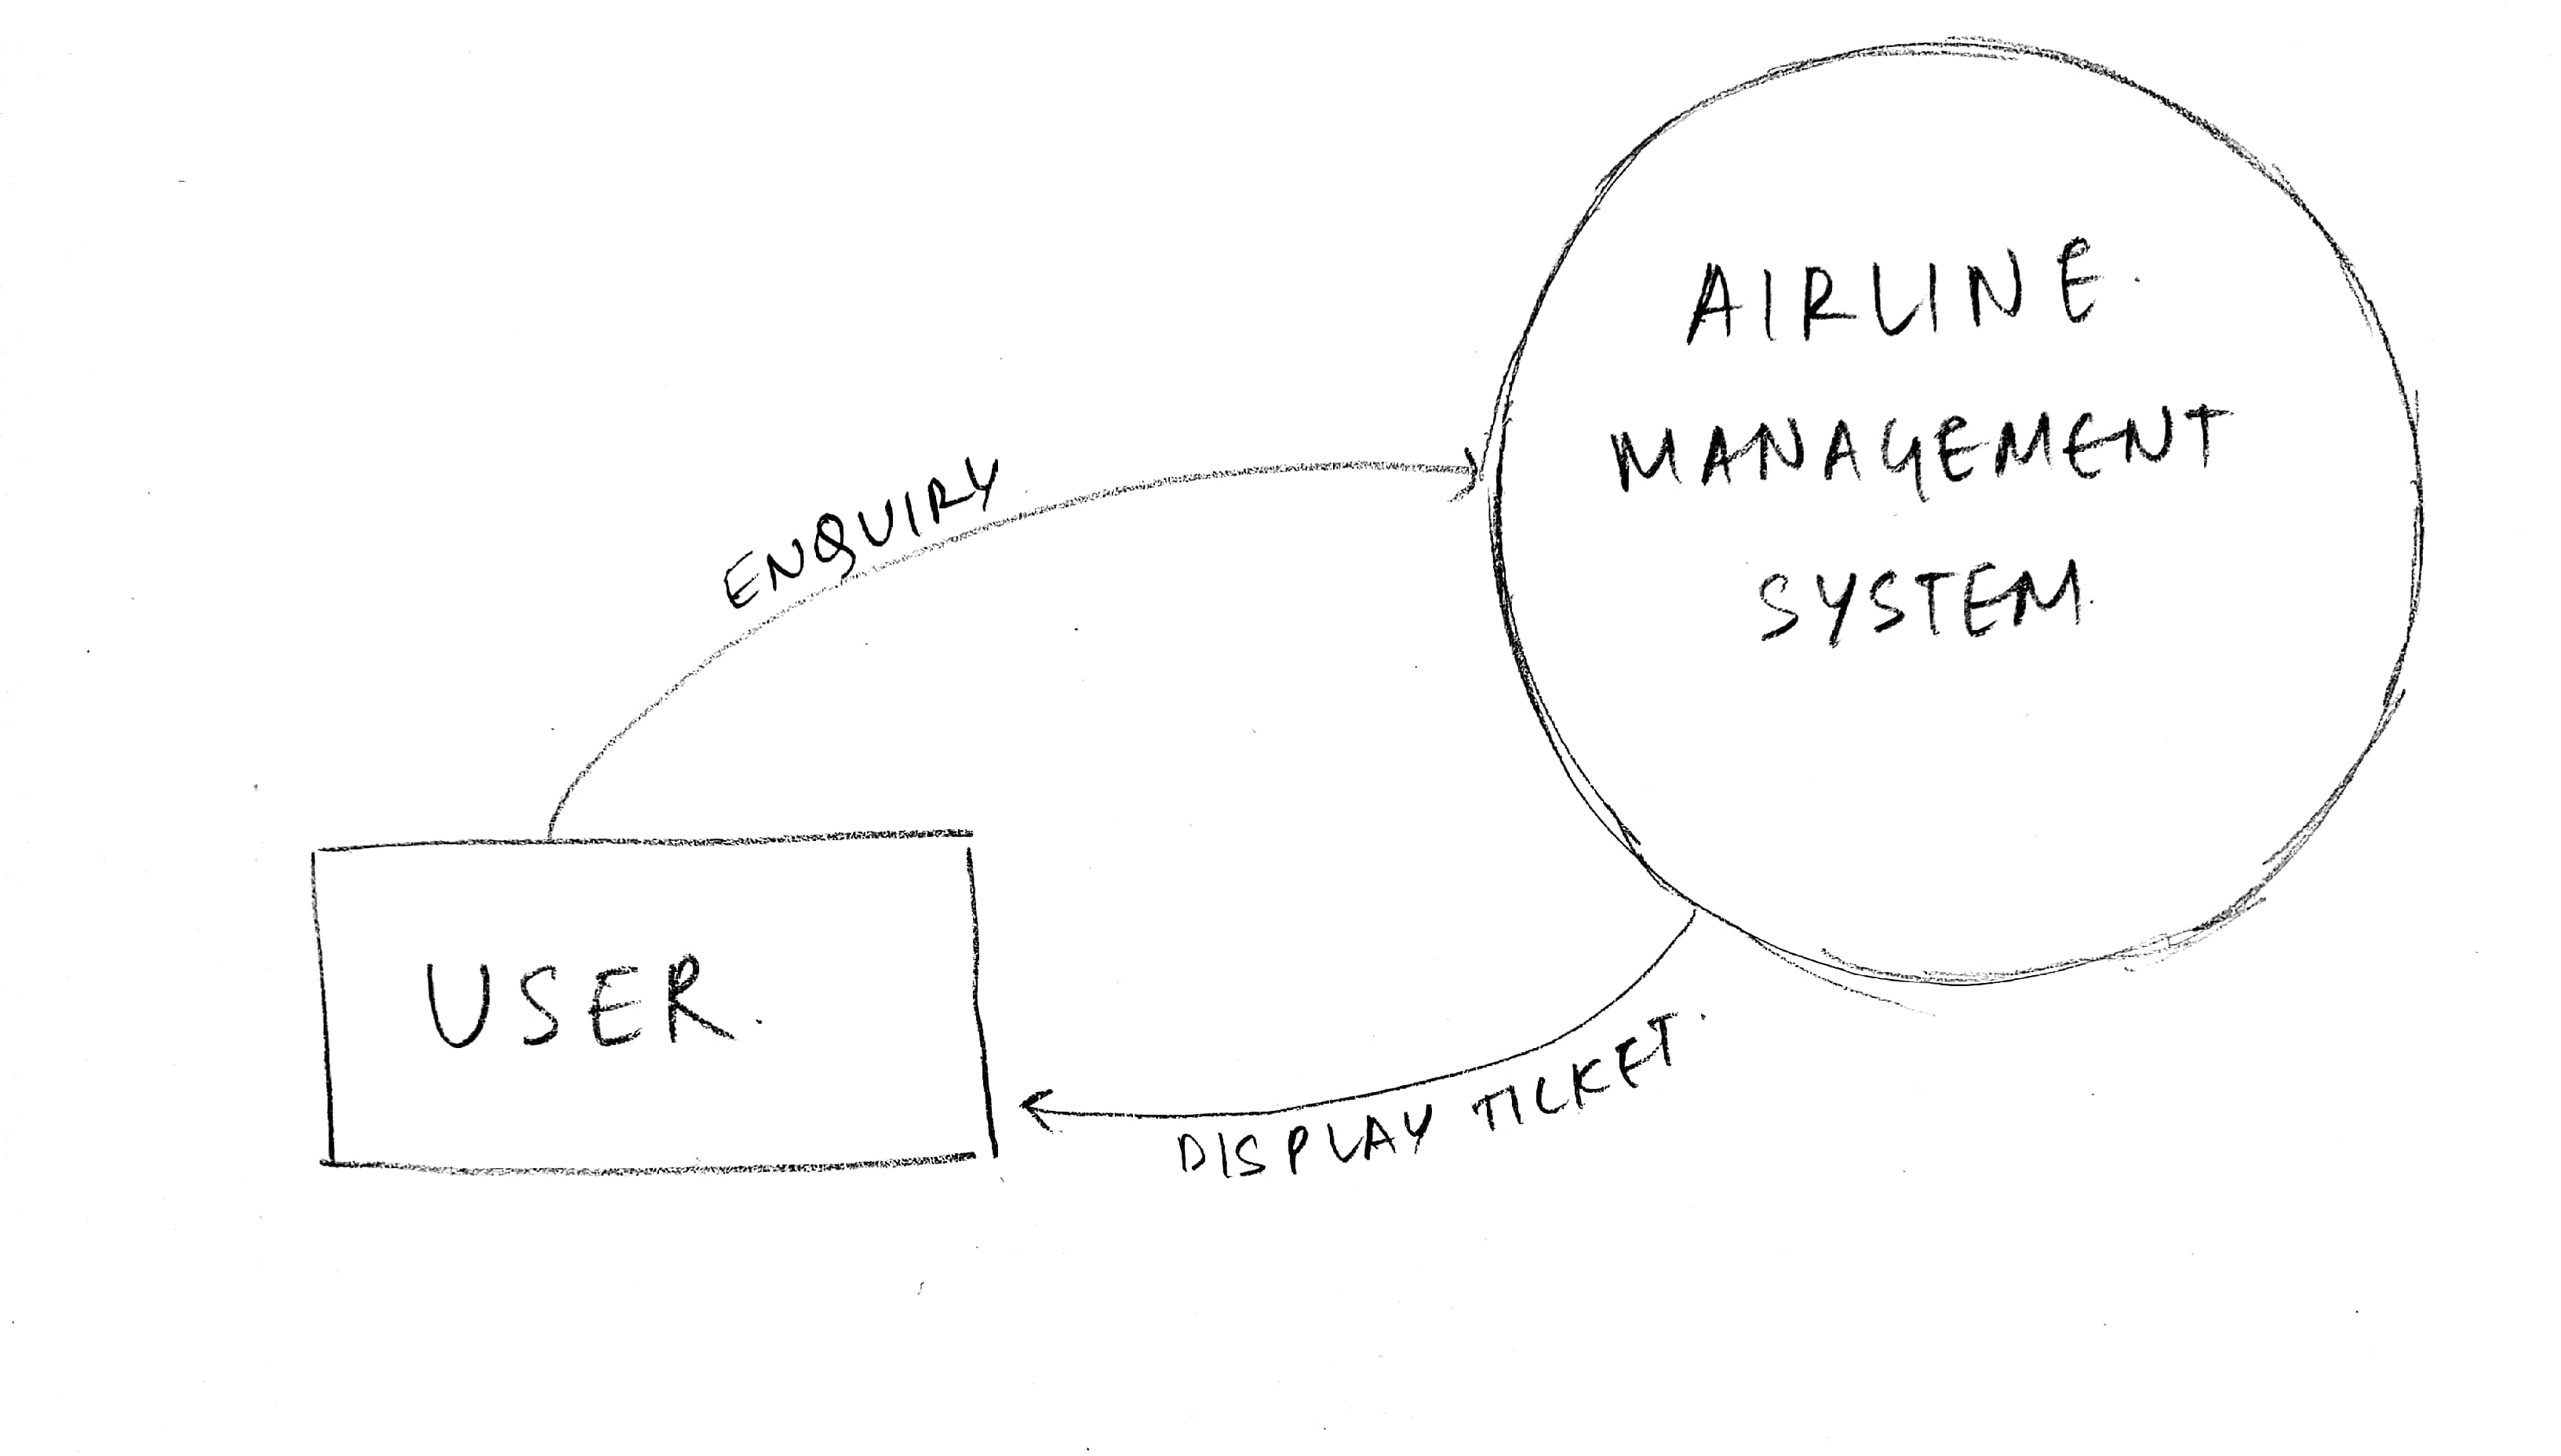 AIRLINE.
MANAGEMENT
SYSTEM.
ENQUIRY
USER.
DISPLAY TICKET.